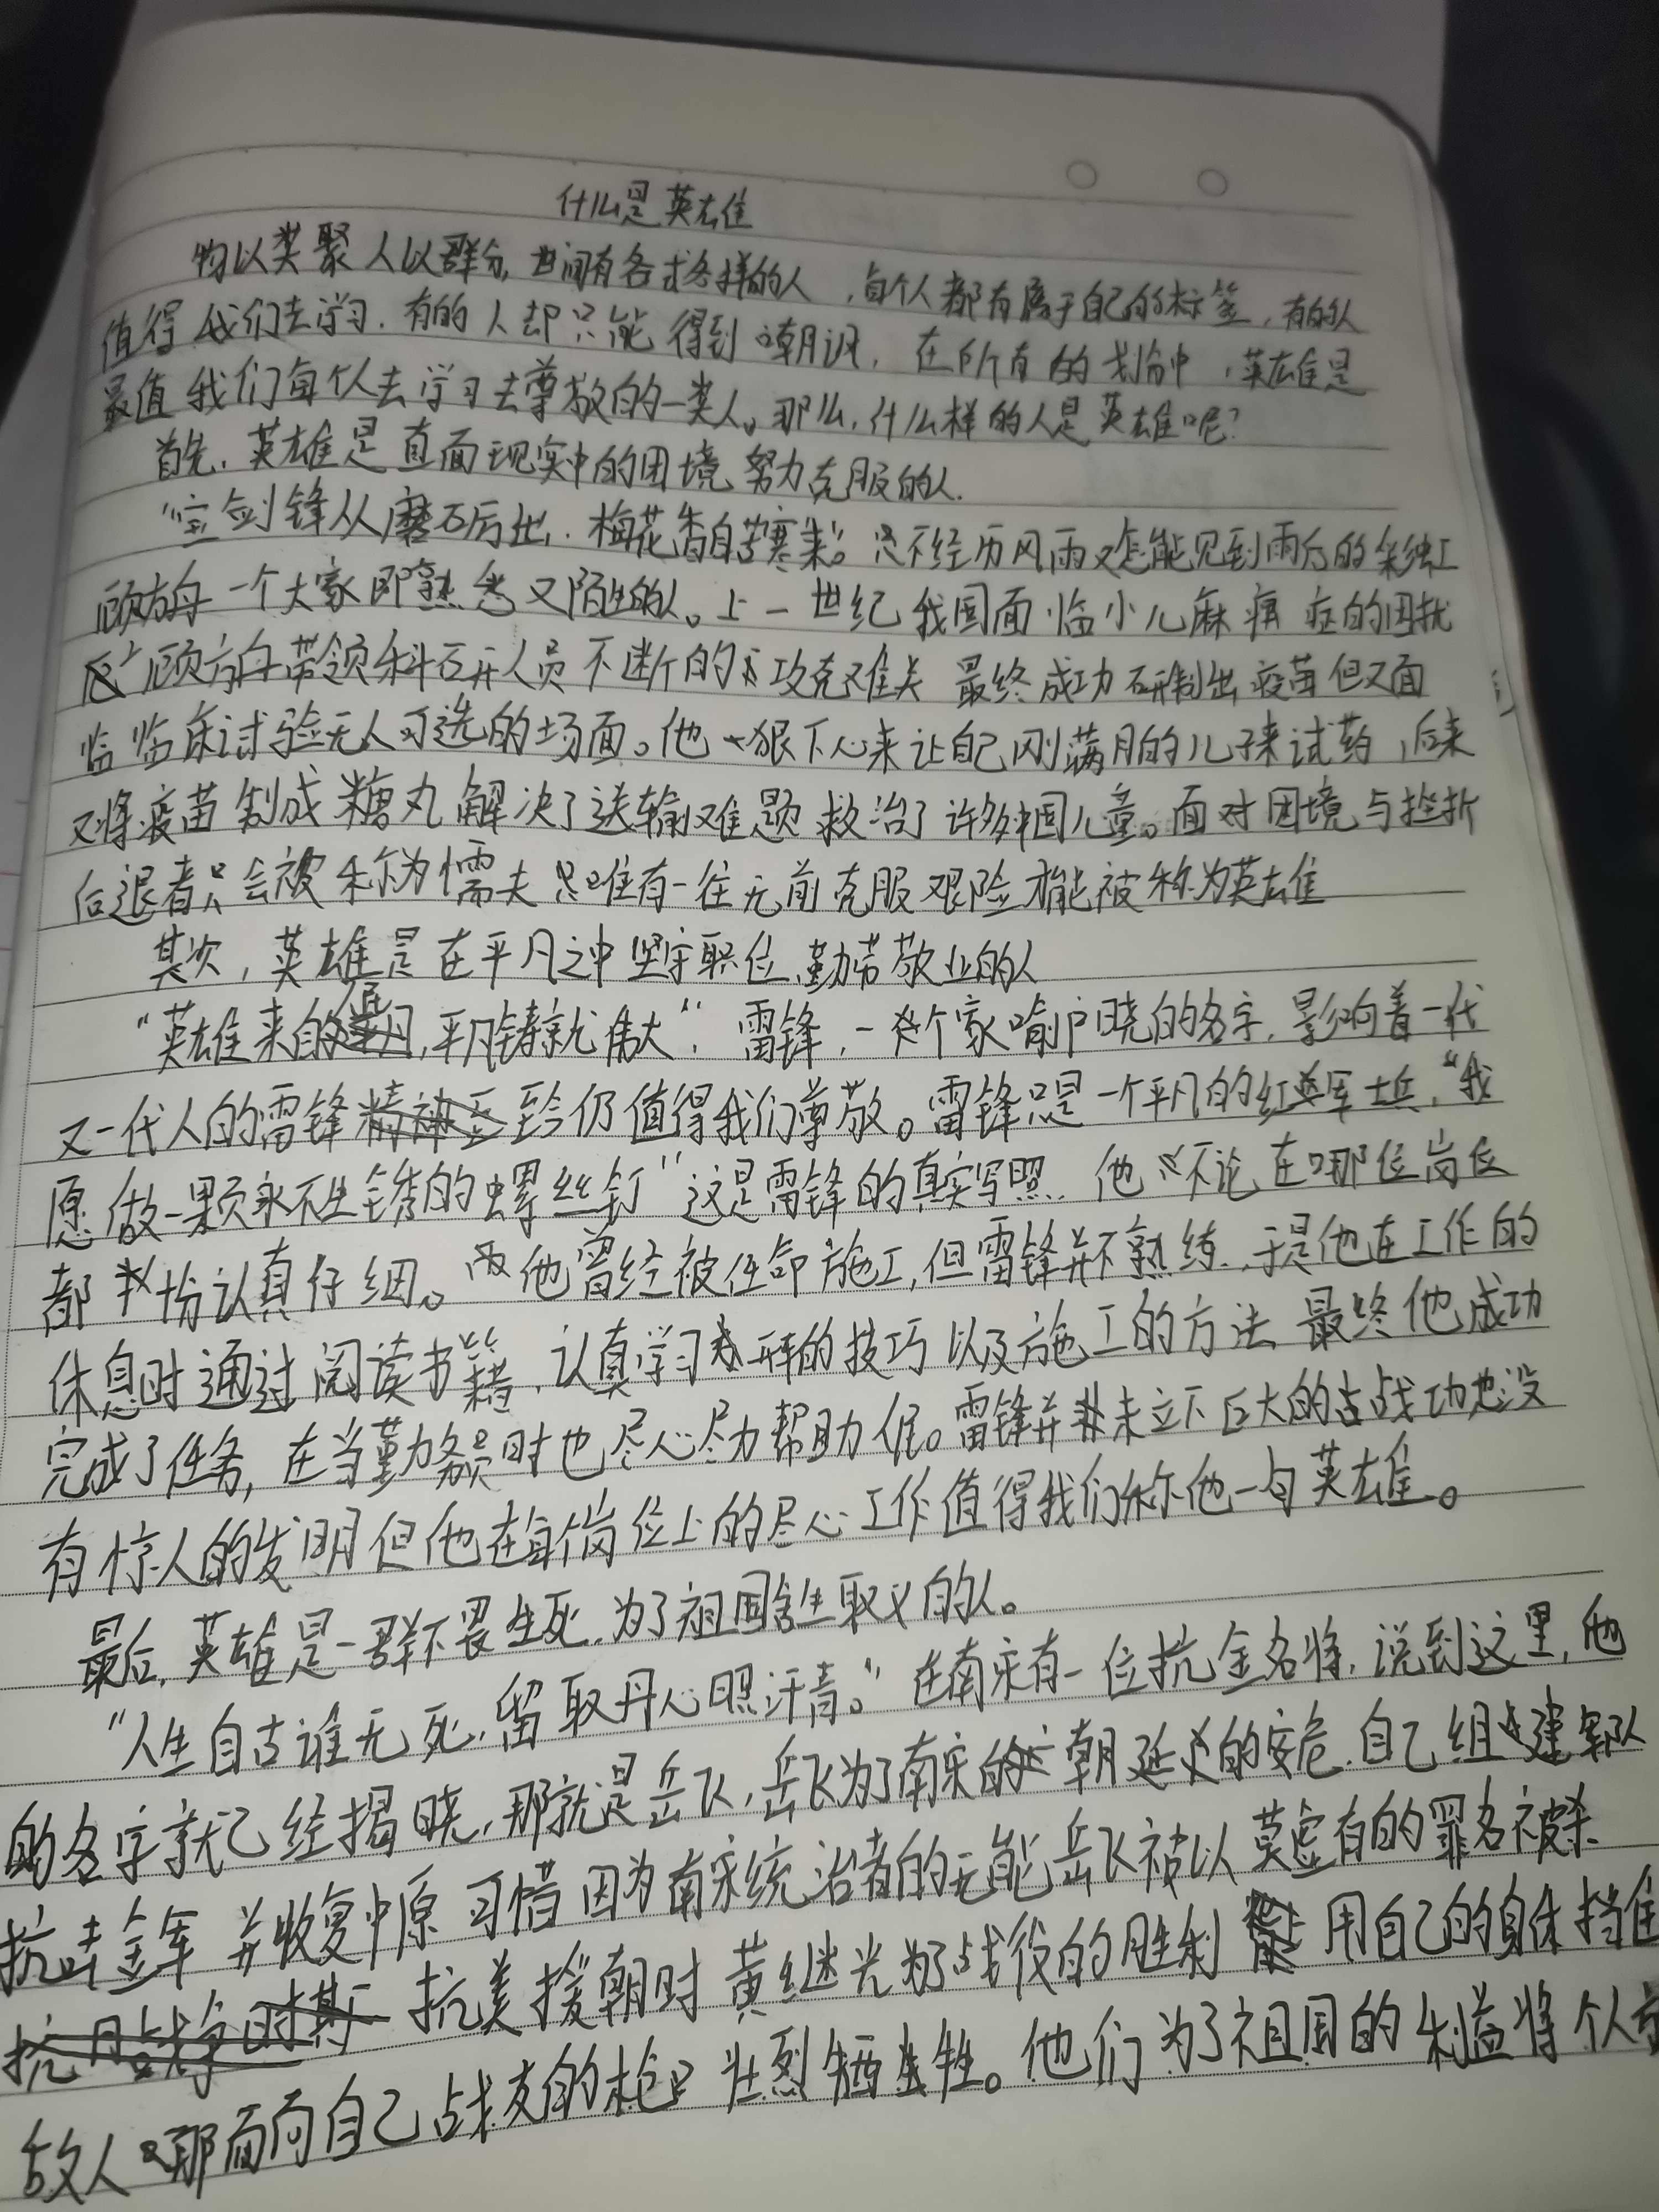 什么是英雄
物以类聚人以群分,世间有各式各样的人,每个人都有属于自己的标签,有的人
值得我们去学习.有的人却只能得到嘲讽,在所有的划分中,英雄是
最值我们每个人去学习去尊敬的一类人。那么,什么样的人是英雄呢?
首先,英雄是直面现实中的困境努力克服的人.
“宝剑锋从磨石后出.梅花香自苦寒来。不经历风雨又怎能见到雨后的彩虹
顾方舟一个大家即熟悉又陌生的人。上一世纪我国面临小儿麻痹症的困扰
顾方舟带领科研人员不断的攻克难关 最终成功研制出疫苗但又面
临临床试验无人可选的场面。他一狠下心来让自己刚满月的儿子来试药,后来
又将疫苗制成糖丸解决了送输难题救治了许多中国儿童。面对困境与挫折
后退者只会被称为懦夫 只唯有一往无前克服艰险才能被称为英雄
其次,英雄是在平凡之中坚守职位、勤劳敬业的人
“英雄来自平凡,平凡铸就伟大”,雷锋,一个家喻户晓的名字,影响着一代
又一代人的雷锋至今仍值得我们尊敬。雷锋只是一个平凡的红军士兵,“我
愿做一颗永不生锈的螺丝钉”这是雷锋的真实写照.他不论在哪位岗位
都十份认真仔细。他曾经被任命施工,但雷锋并不熟练,于是他在工作的
休息时通过阅读书籍,认真学习的技巧以及施工的方法 最终他成功
完成了任务,在当勤务员时也尽心尽力帮助人。雷锋并未立下巨大的战功也没
有惊人的发明但他在每个岗位上的尽心工作值得我们称他一句英雄。
最后,英雄是一群不畏生死,为了祖国舍生取义的人。
“人生自古谁无死,留取丹心照汗青。”在南宋有一位抗金名将,说到这里,他
的名字就已经揭晓,那就是岳飞,岳飞为了南宋的朝延的安危.自己组建军队
抗击金军 并收复中原 可惜因为南宋统治者的无能岳飞被以莫虚有的罪名被杀
抗美援朝时黄继光为了战役的胜利 用自己的身体挡住
敌人那面向自己战友的枪口 壮烈牺牲。他们为了祖国的利益将个人